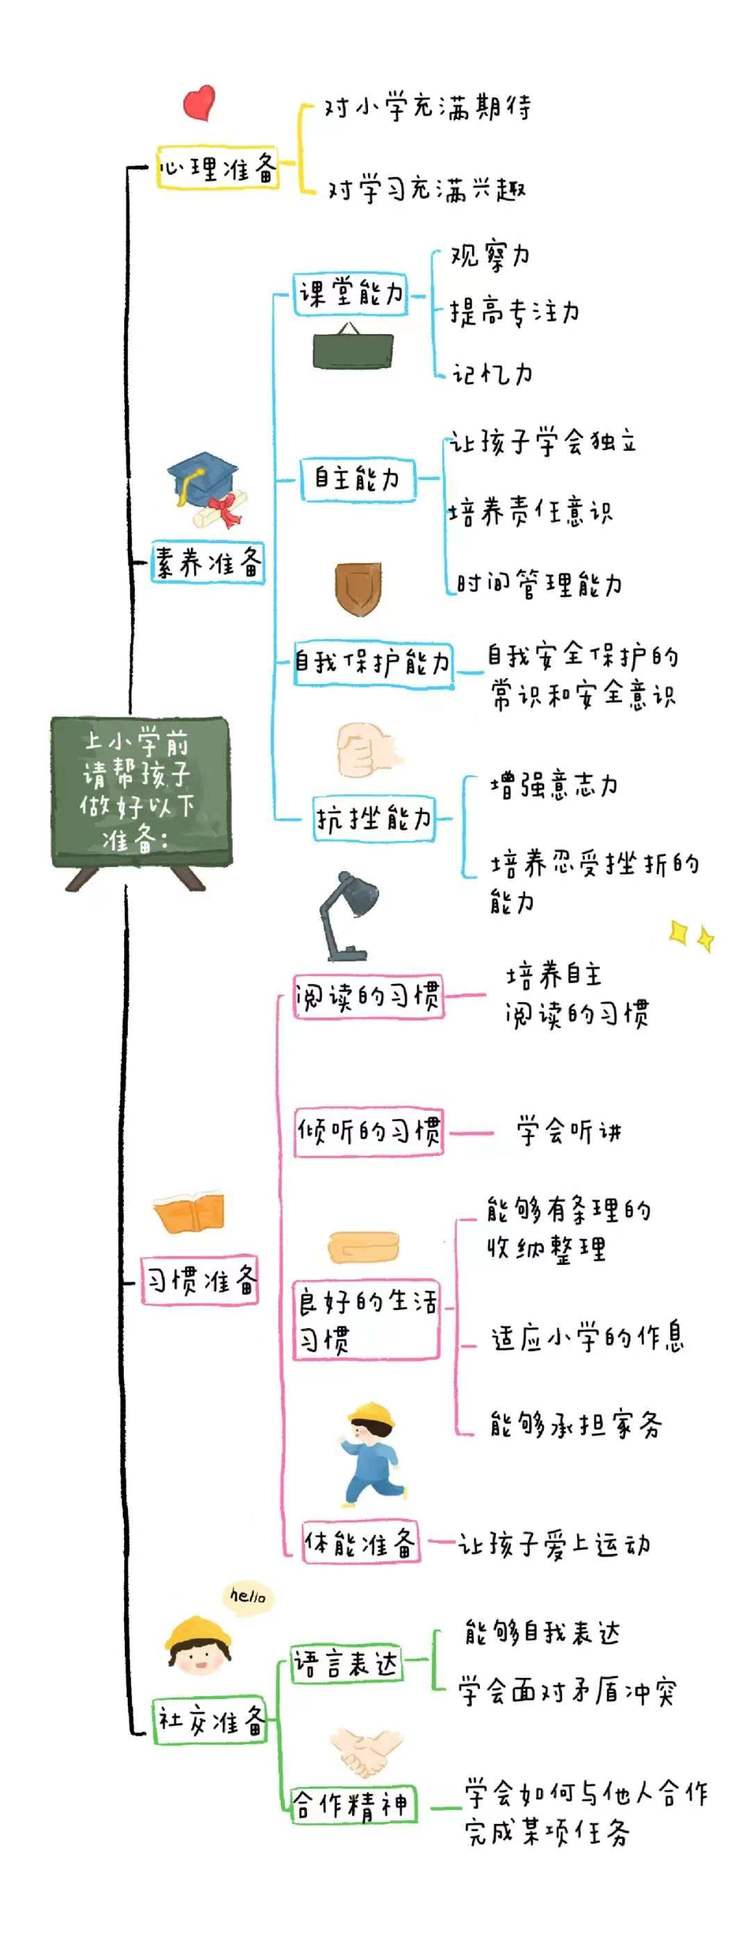 上小学前
请帮孩子
做好以下
准备:
心理准备
对小学充满期待
对学习充满兴趣
素养准备
课堂能力
观察力
提高专注力
记忆力
自主能力
让孩子学会独立
培养责任意识
时间管理能力
自我保护能力
自我安全保护的
常识和安全意识
抗挫能力
增强意志力
培养忍受挫折的
能力
习惯准备
阅读的习惯
培养自主
阅读的习惯
倾听的习惯
学会听讲
良好的生活
习惯
能够有条理的
收纳整理
适应小学的作息
能够承担家务
体能准备
让孩子爱上运动
hello
社交准备
语言表达
能够自我表达
学会面对矛盾冲突
合作精神
学会如何与他人合作
完成某项任务